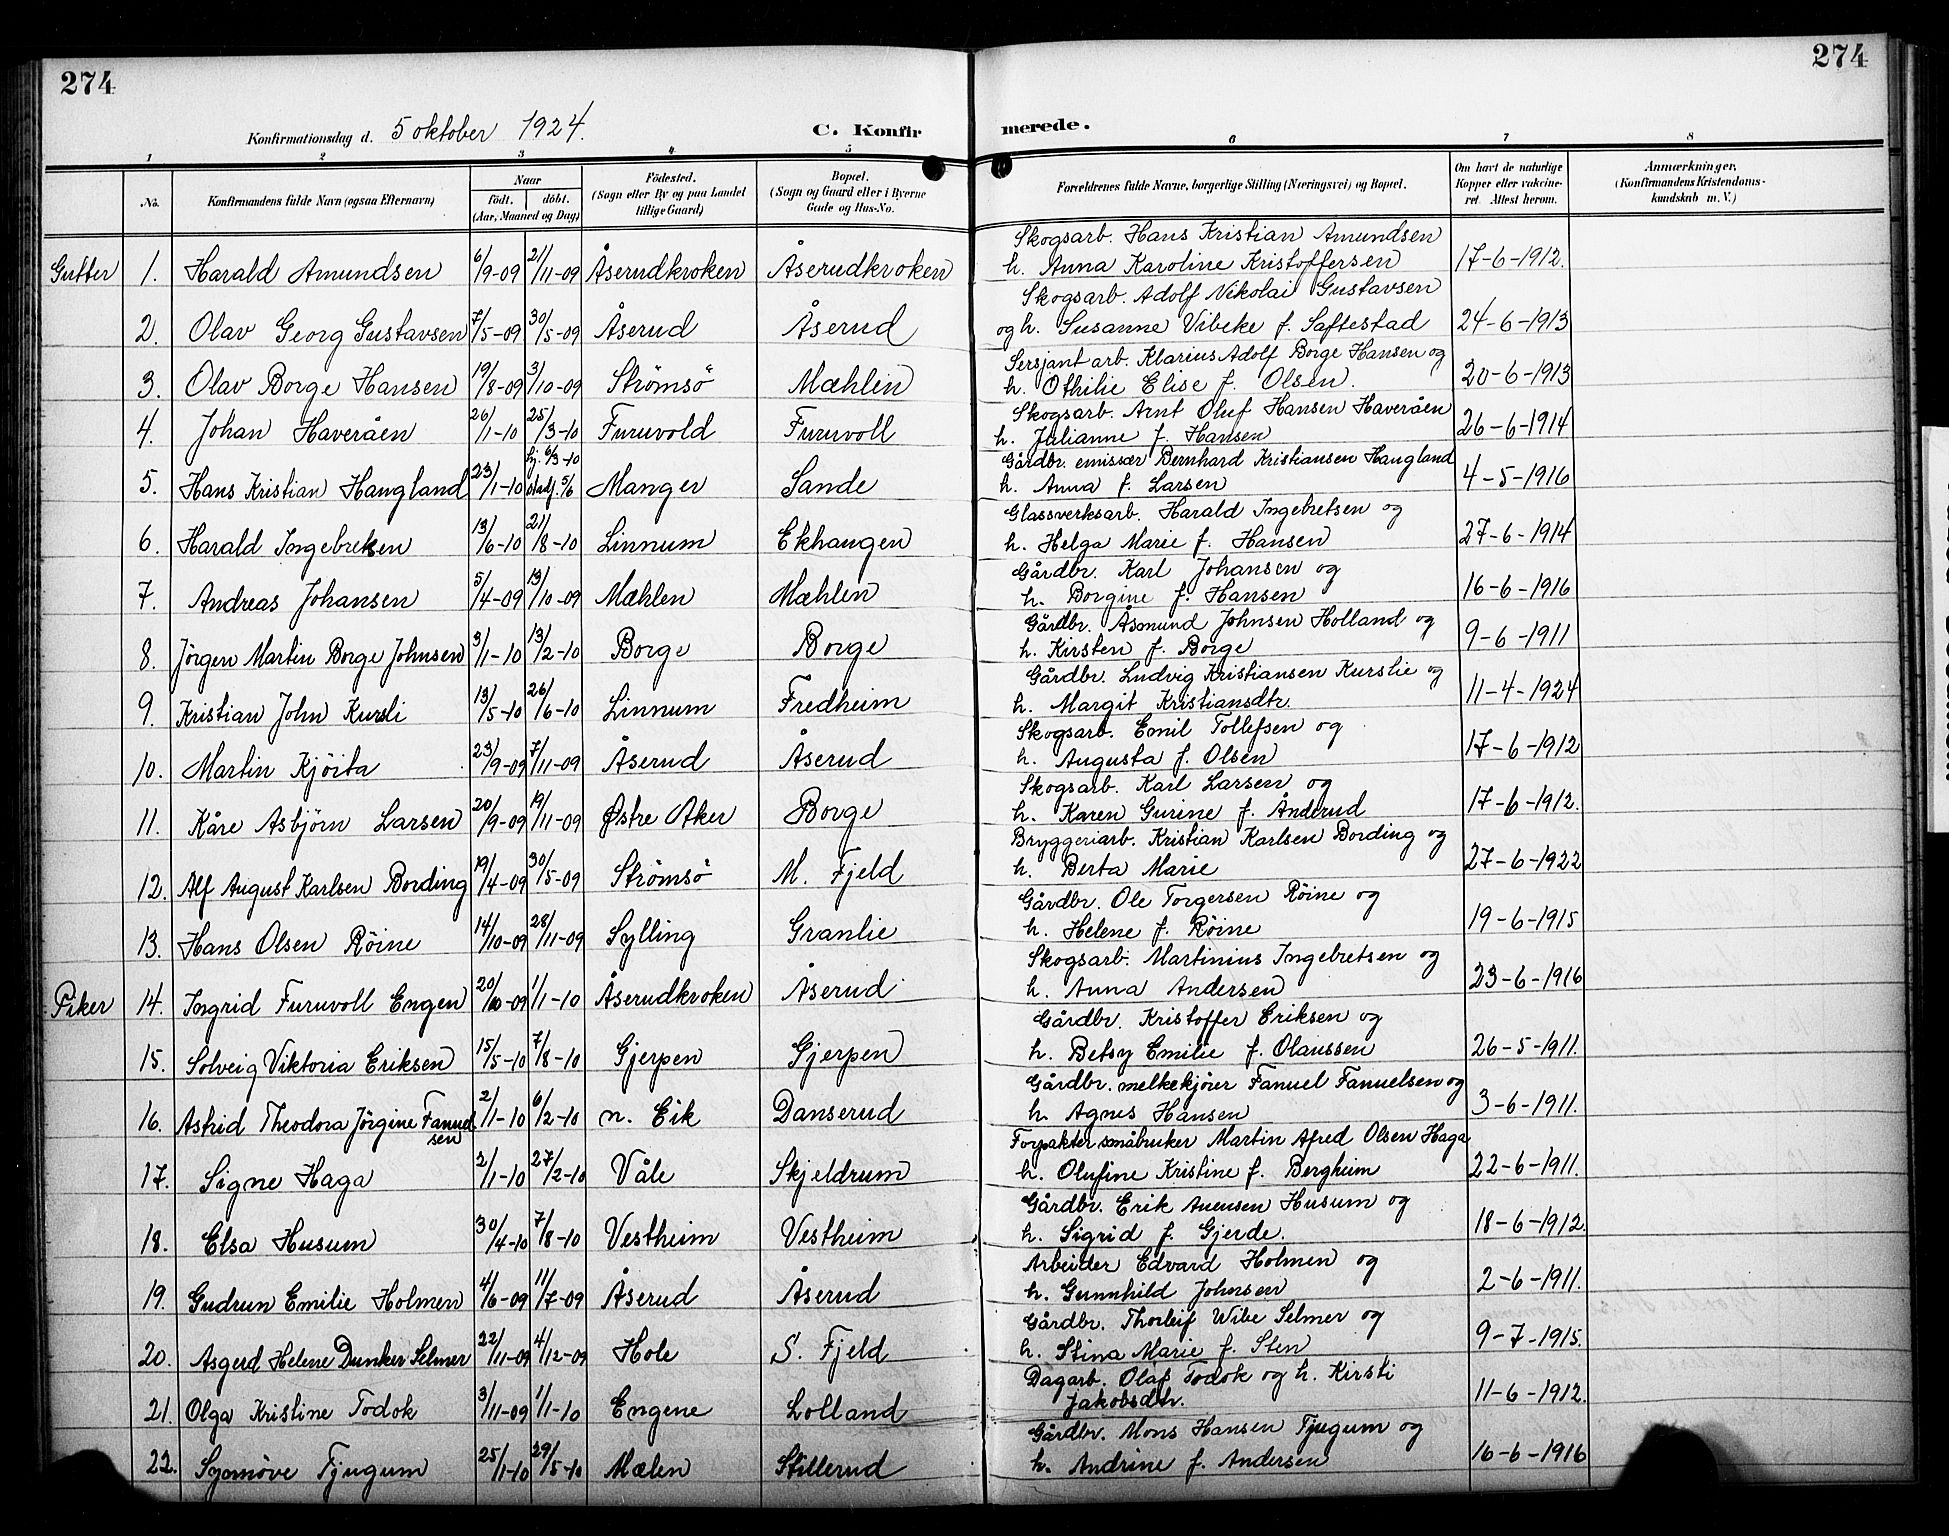 274
274
Konfirmationsdag d. 5 oktober 1924.
C. Konfirmerede.
1 2 3 4 5 6 7 8
No. Konfirmandens fulde Navn (ogsaa Efternavn) Naar født. døbt. (Aar, Maaned og Dag) Födested. (Sogn eller By og paa Landet tillige Gaard) Bopæl. (Sogn og Gaard eller i Byerne Gade og Hus-No. Forældrenes fulde Navne, borgerlige Stilling (Næringsvei) og Bopæl. Om havt de naturlige Kopper eller vakcineret. Attest herom. Anmærkninger. (Konfirmandens Kristendomskundskab m. V.)
Gutter 1. Harald Amundsen 6/9-09 21/11-09 Åserudkroken Åserudkroken Skogsarb. Hans Kristian Amundsen h. Anna Karoline Kristoffersen 17-6-1912.
2. Olav Georg Gustavsen 7/5-09 30/5-09 Åserud Åserud Skogsarb. Adolf Nikolai Gustavsen og h. Susanne Vibeke f. Saftestad 24-6-1913
3. Olav Borge Hansen 19/8-09 3/10-09 Strømsö Mæhlen Sersjant arb. Klarius Adolf Borge Hansen og h. Othilie Elise f. Olsen. 20-6-1913
4. Johan Haveråen 26/1-10 25/3-10 Furuvold Furuvoll Skogsarb. Arnt Oluf Hansen Haveråen h. Julianne f. Hansen 26-6-1914
5. Hans Kristian Haugland 23/1-10 hj. 6/3-10 stadf. 5/6 Manger Sande Gårdbr. emissær Bernhard Kristiansen Haugland h. Anna f. Larsen 4-5-1916
6. Harald Ingebretsen 13/6-10 21/8-10 Linnum Ekhaugen Glassverksarb. Harald Ingebretsen og h. Helga Marie f. Hansen 27-6-1914
7. Andreas Johansen 5/4-09 13/10-09 Mæhlen Mæhlen Gårdbr. Karl Johansen og h. Borgine f. Hansen 16-6-1916
8. Jörgen Martin Borge Johnsen 3/1-10 13/2-10 Borge Borge Gårdbr. Åsmund Johnsen Holland og h. Kirsten f. Borge 9-6-1911
9. Kristian John Kursli 13/5-10 26/6-10 Linnum Fredheim Gårdbr. Ludvig Kristiansen Kurslie og h. Margit Kristiansdtr. 11-4-1924
10. Martin Kjöita 23/9-09 7/11-09 Åserud Åserud Skogsarb. Emil Tollefsen og h. Augusta f. Olsen 17-6-1912
11. Kåre Asbjörn Larsen 20/9-09 19/11-09 Østre Aker Borge Skogsarb. Karl Larsen og h. Karen Gurine f. Ånderud 17-6-1912.
12. Alf August Karlsen Bording 19/4-09 30/5-09 Strömsö M. Fjeld Bryggeriarb. Kristian Karlsen Bording og h. Berta Marie 27-6-1922
13. Hans Olsen Röine 14/10-09 28/11-09 Sylling Granlie Gårdbr. Ole Torgersen Röine og h. Helene f. Röine 19-6-1915
Piker 14. Ingrid Furuvoll Engen 20/10-09 1/1-10 Åserudkroken Åserud Skogsarb. Martinius Ingebretsen og h. Anna Andersen 23-6-1916
15. Solveig Viktoria Eriksen 15/5-10 7/8-10 Gjerpen Gjerpen Gårdbr. Kristoffer Eriksen og h. Betsy Emilie f. Olaussen 26-5-1911.
16. Astrid Theodora Jörgine Fanuelsen 2/1-10 6/2-10 n. Eik Danserud Gårdbr. melkekjører Fanuel Fanuelsen og h. Agnes Hansen 3-6-1911.
17. Signe Haga 2/1-10 27/2-10 Våle Skjeldrum Forpakter småbruker Martin Afred Olsen Haga h. Olufine Kristine f. Bergheim 22-6-1911.
18. Elsa Husum 30/4-10 7/8-10 Vestheim Vestheim Gårdbr. Erik Auensen Husum og h. Sigrid f. Gjerde. 18-6-1912.
19. Gudrun Emilie Holmen 4/6-09 11/7-09 Åserud Åserud Arbeider Edvard Holmen og h. Gunnhild Johnsen 2-6-1911.
20. Asgerd Helene Dunker Selmer 22/11-09 4/12-09 Hole S. Fjeld Gårdbr. Thorleif Wibe Selmer og h. Stina Marie f. Sten 9-7-1915.
21. Olga Kristine Todok 3/11-09 1/1-10 Engene Lolland Dagarb. Olaf Todok og h. Kirsti Jakobsdtr. 11-6-1912.
22. Synnöve Tjugum 25/1-10 29/5-10 Mælen Stillerud Gårdbr. Mons Hansen Tjugum og h. Andrine f. Andersen 16-6-1916